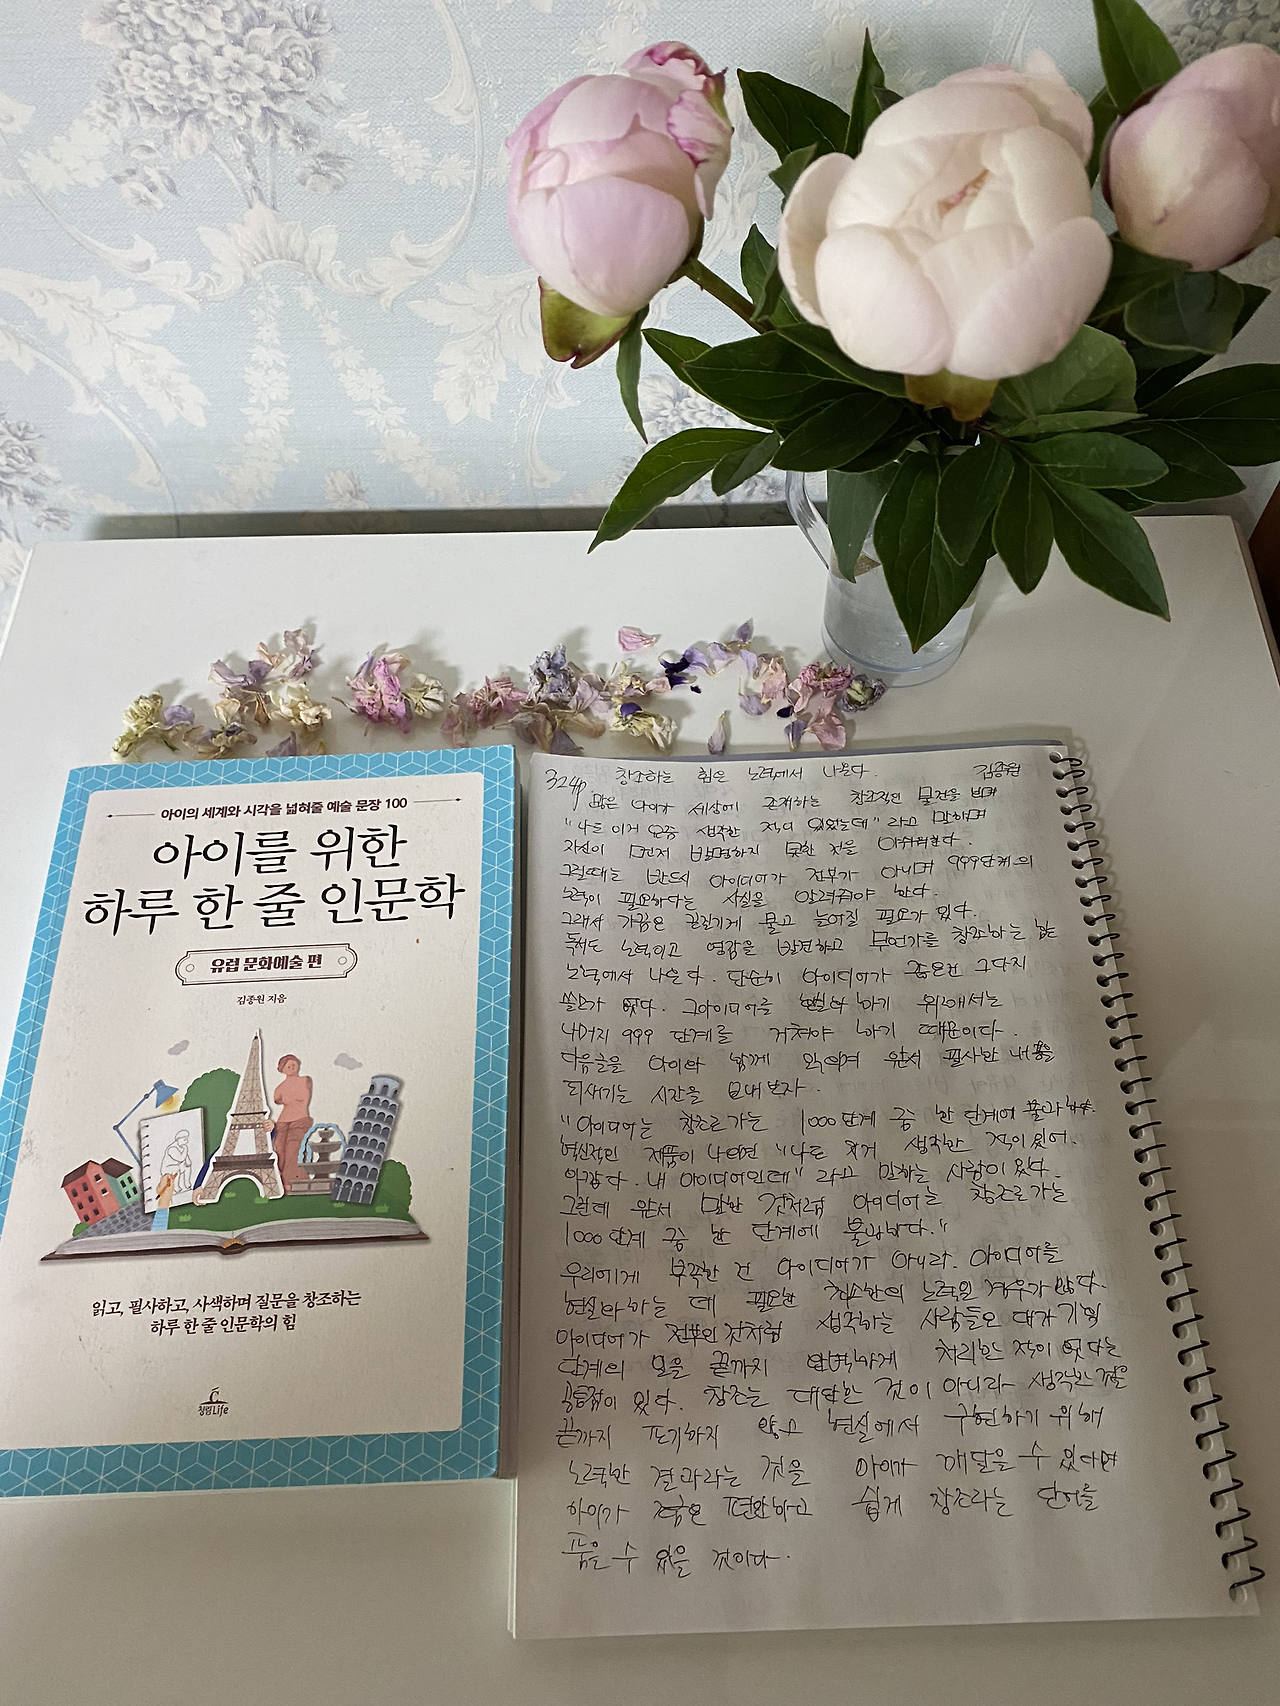 아이의 세계와 시각을 넓혀줄 예술 문장 100
아이를 위한
하루 한 줄 인문학
유럽 문화예술 편
김종원 지음
읽고, 필사하고, 사색하며 질문을 창조하는
하루 한 줄 인문학의 힘
청림Life
324p 창조하는 힘은 노력에서 나온다. 김종원
많은 아이가 세상에 존재하는 창조적인 물건을 보며
"나도 이거 요즘 생각한 적이 있었는데" 라고 말하며
자신이 먼저 발명하지 못한 것을 아쉬워한다.
그럴때는 반드시 아이디어가 전부가 아니며 999단계의
노력이 필요하다는 사실을 알려줘야 한다.
그래서 가끔은 끈질기게 물고 늘어질 필요가 있다.
독서도 노력이고 영감을 발견하고 무언가를 창조하는 힘도
노력에서 나온다. 단순히 아이디어가 좋은건 그다지
쓸모가 없다. 그아이디어를 현실화 하기 위해서는
나머지 999 단계를 거쳐야 하기 때문이다.
다음글을 아이와 함께 읽으며 앞서 필사한 내용을
되새기는 시간을 보내보자.
"아이디어는 창조로 가는 1000단계 중 한 단계에 불과해.
혁신적인 제품이 나오면 "나도 저거 생각한 적이 있어.
아깝다. 내 아이디어인데" 라고 말하는 사람이 있다.
그런데 앞서 말한 것처럼 아이디어는 창조로 가는
1000단계 중 한 단계에 불과하다."
우리에게 부족한 건 아이디어가 아니라. 아이디어를
현실화하는 데 필요한 최소한의 노력인 경우가 많다.
아이디어가 전부인 것처럼 생각하는 사람들은 대개 기획
단계의 일을 끝까지 완벽하게 처리한 적이 없다는
공통점이 있다. 창조는 대단한 것이 아니라 생각한 것을
끝까지 포기하지 않고 현실에서 구현하기 위해
노력한 결과라는 것을 아이가 깨달을 수 있다면
아이가 조금은 편안하고 쉽게 창조라는 단어를
품을 수 있을 것이다.